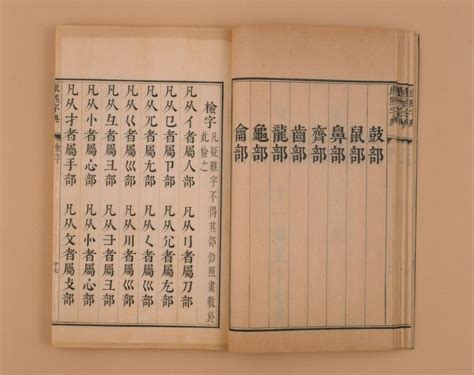 鼓部
鼠部
鼻部
齊部
齒部
龍部
龜部
龠部
檢字 凡疑難字不得其部仍照畫數於此檢之
凡从亻者屬人部 凡从刂者屬刀部
凡从㔾者屬卩部 凡从尣者屬尢部
凡从兀者屬尢部 凡从く者屬巛部
凡从巜者屬巛部 凡从川者屬巛部
凡从彑者屬彐部 凡从⺕者屬彐部
凡从忄者屬心部 凡从㣺者屬心部
凡从扌者屬手部 凡从攵者屬攴部
康熙字典 檢字